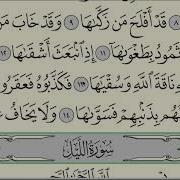 ٨ قَدْ أَفْلَحَ مَن زَكَّىٰهَا ٩ وَقَدْ خَابَ مَن
ثَمُودُ بِطَغْوَىٰهَآ ١١ إِذِ ٱنۢبَعَثَ أَشْقَىٰهَا ١٢
نَاقَةَ ٱللَّهِ وَسُقْيَٰهَا ١٣ فَكَذَّبُوهُ فَعَقَرُو
بِذَنۢبِهِمْ فَسَوَّىٰهَا ١٤ وَلَا يَخَافُ
سُورَةُ ٱللَّيْلِ